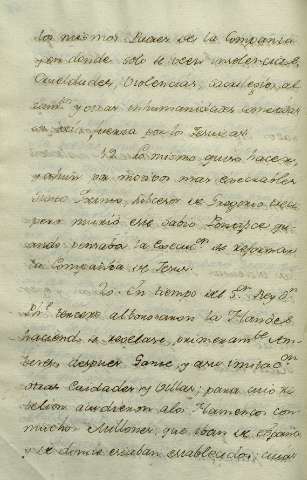 los mismos Padres de la Compania
por donde solo se veen insolencias,
Crueldades, Violencias,
y otras inhumanidades cometidas
por los Jesuitas.
19. Lo mismo quiso hacer
y por motivos mas execrables
Sucesor de Gregorio
pero murió este sabio Pontifice qu-
ando pensaba la execuc.on de reformar
la Compañia de Jesus.
20. En tiempo del S.or Rey D.n
alborotaron la Flandes
haciendo se revelase, primeram.te Am-
beres, despues Gante, y a su imitac.on
otras Ciudades y Villas; para cuio re-
belion acudieron alos Flamencos con
muchos Millones, que iban de España
y de donde estaban establecidos, cuias